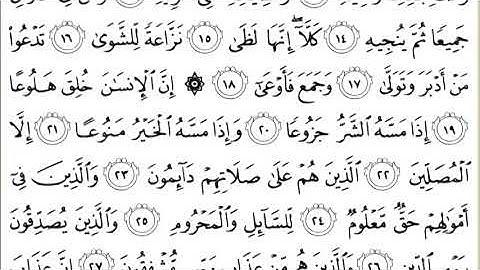 جَمِيعًا ثُمَّ يُنجِيهِ ١٤ كَلَّآۖ إِنَّهَا لَظَىٰ ١٥ نَزَّاعَةً لِّلشَّوَىٰ ١٦ تَدْعُوا۟
مَنْ أَدْبَرَ وَتَوَلَّىٰ ١٧ وَجَمَعَ فَأَوْعَىٰٓ ١٨ ۞ إِنَّ ٱلْإِنسَٰنَ خُلِقَ هَلُوعًا
١٩ إِذَا مَسَّهُ ٱلشَّرُّ جَزُوعًا ٢٠ وَإِذَا مَسَّهُ ٱلْخَيْرُ مَنُوعًا ٢١ إِلَّا
ٱلْمُصَلِّينَ ٢٢ ٱلَّذِينَ هُمْ عَلَىٰ صَلَاتِهِمْ دَآئِمُونَ ٢٣ وَٱلَّذِينَ فِىٓ
أَمْوَٰلِهِمْ حَقٌّ مَّعْلُومٌ ٢٤ لِّلسَّآئِلِ وَٱلْمَحْرُومِ ٢٥ وَٱلَّذِينَ يُصَدِّقُونَ
بِيَوْمِ ٱلدِّينِ ٢٦ وَٱلَّذِينَ هُم مِّنْ عَذَابِ رَبِّهِم مُّشْفِقُونَ ٢٧ إِنَّ عَذَابَ